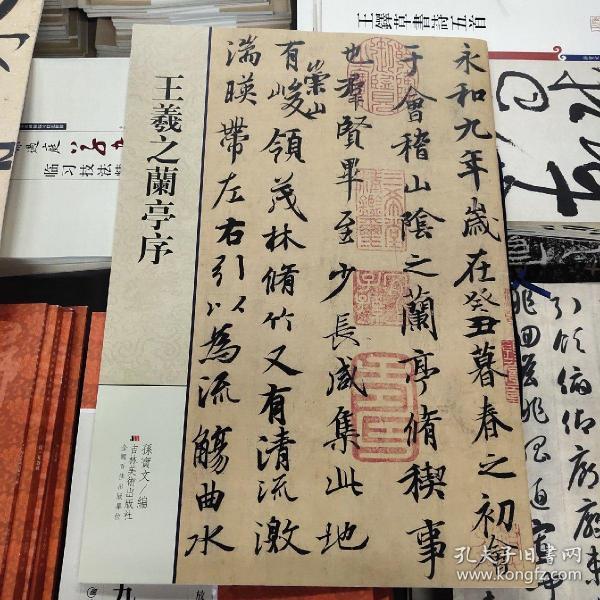 王羲之蘭亭序
孫寶文/編
吉林美術出版社
全國百佳出版單位
永和九年歲在癸丑暮春之初會
于會稽山陰之蘭亭脩稧事
也羣賢畢至少長咸集此地
有崇山峻領茂林脩竹又有清流激
湍暎帶左右引以為流觴曲水
王鐸草書詩五首
临习技法精
九
放
孔夫子旧书网
www.kongfz.com